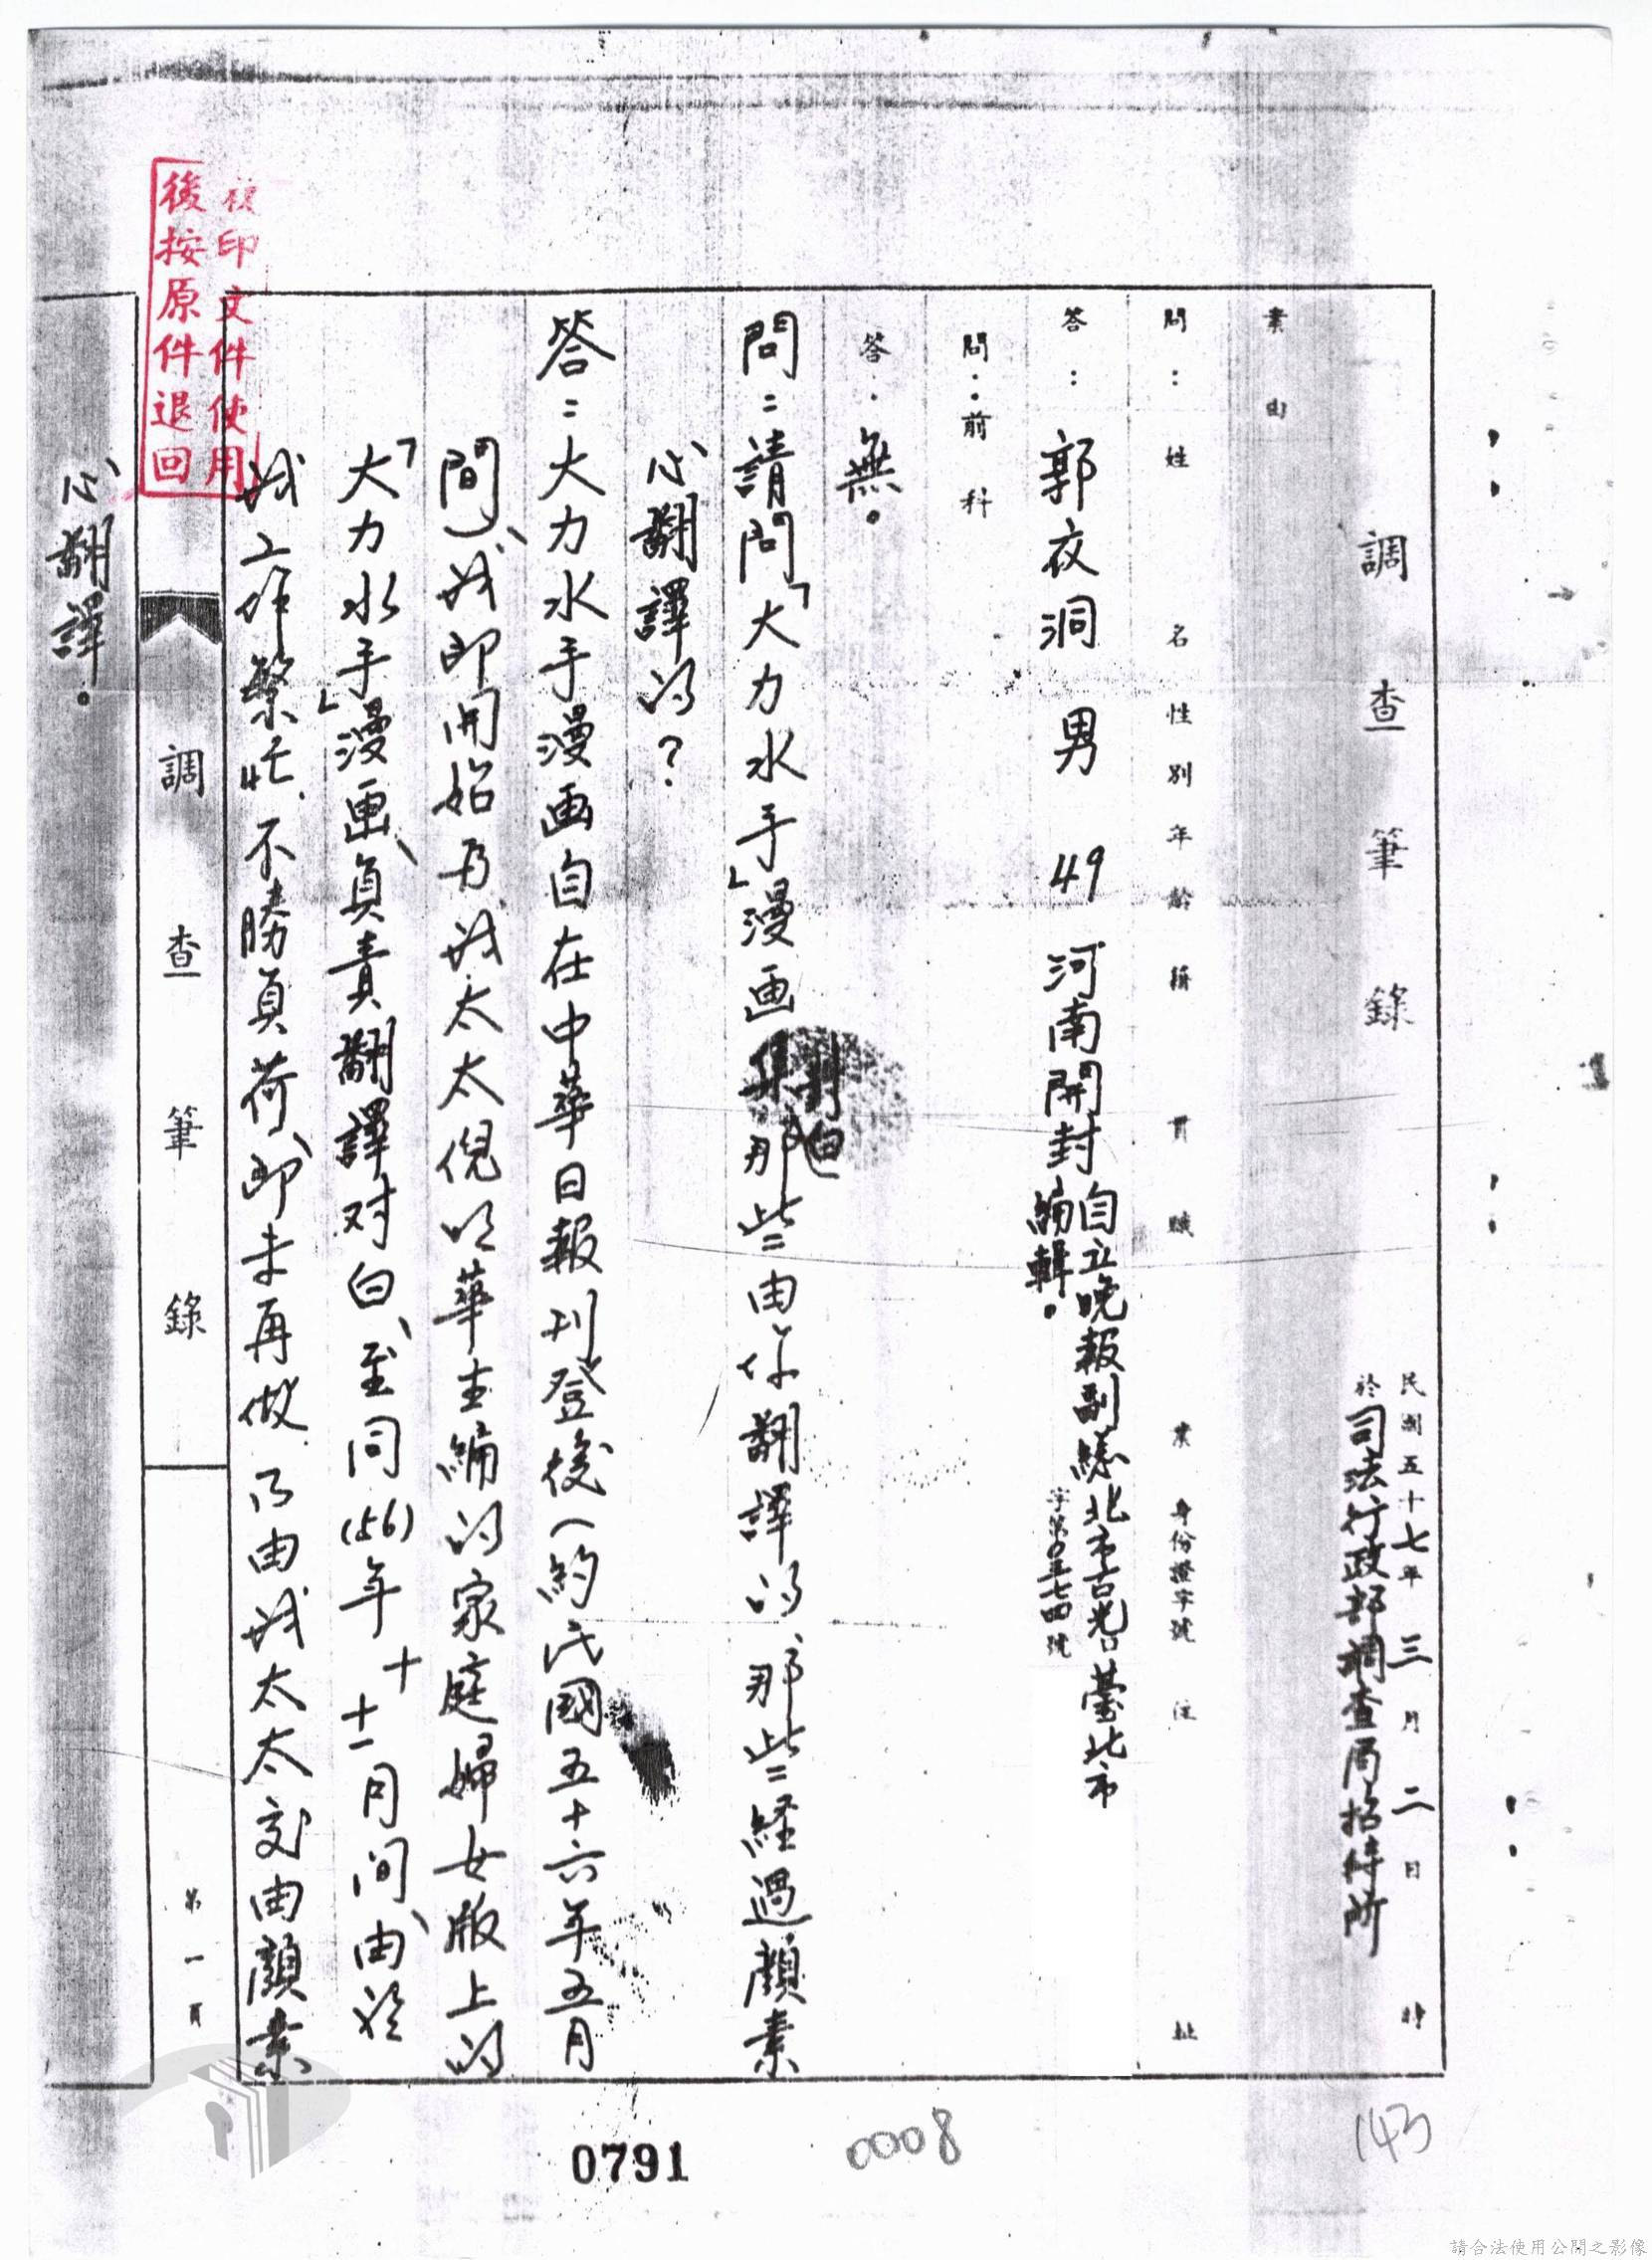 調查筆錄
民國五十七年三月二日 時
於司法行政部調查局招待所
案由
問：姓名性別年齡籍貫職業身份證字號住址
答：郭衣洞 男 49 河南開封 自立晚報副總編輯。北市古 臺北市
字第 號
問：前科
答：無。
問：請問「大力水手」漫画 那些由你翻譯的、那些経過顏素
心翻譯的？
答：大力水手漫画自在中華日報刊登後（約民國五十六年五月
間）、我即開始為我太太倪明華主編的家庭婦女版上的
「大力水手」漫畫、負責翻譯对白、至同(56)年十 十一月间、由於
我工作繁忙、不勝負荷、即未再做、乃由我太太交由顏素
心翻譯。
調查筆錄
第一頁
複印文件使用
後按原件退回
0791
0008
143
請合法使用公開之影像